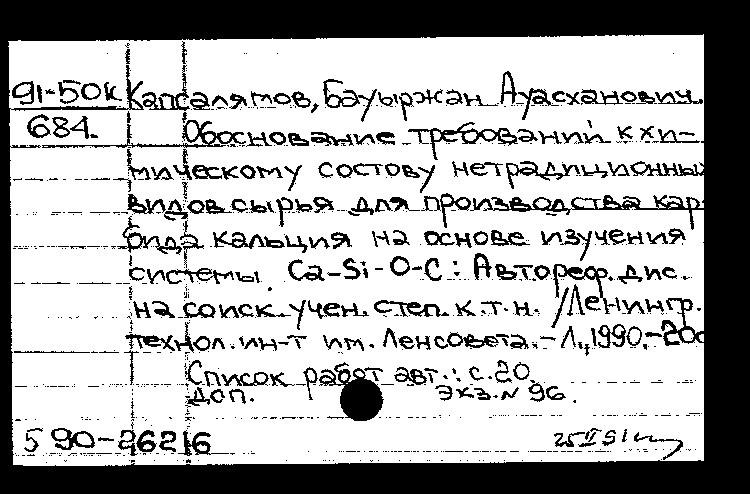 91-50к Капсалямов, Бауыржан Ауасханович.
684. Обоснование требований к хи-
мическому состову нетрадиционных
видов сырья для производства кар-
бида кальция на основе изучения
системы Ca-Si-O-C: Автореф. дис.
на соиск. учен. степ. к.т.н. /Ленингр.
технол. ин-т им. Ленсовета.-Л.,1990.-20с
Список работ авт.: с.20.
Доп. Экз. N 96.
5 90-26216 25 II 91